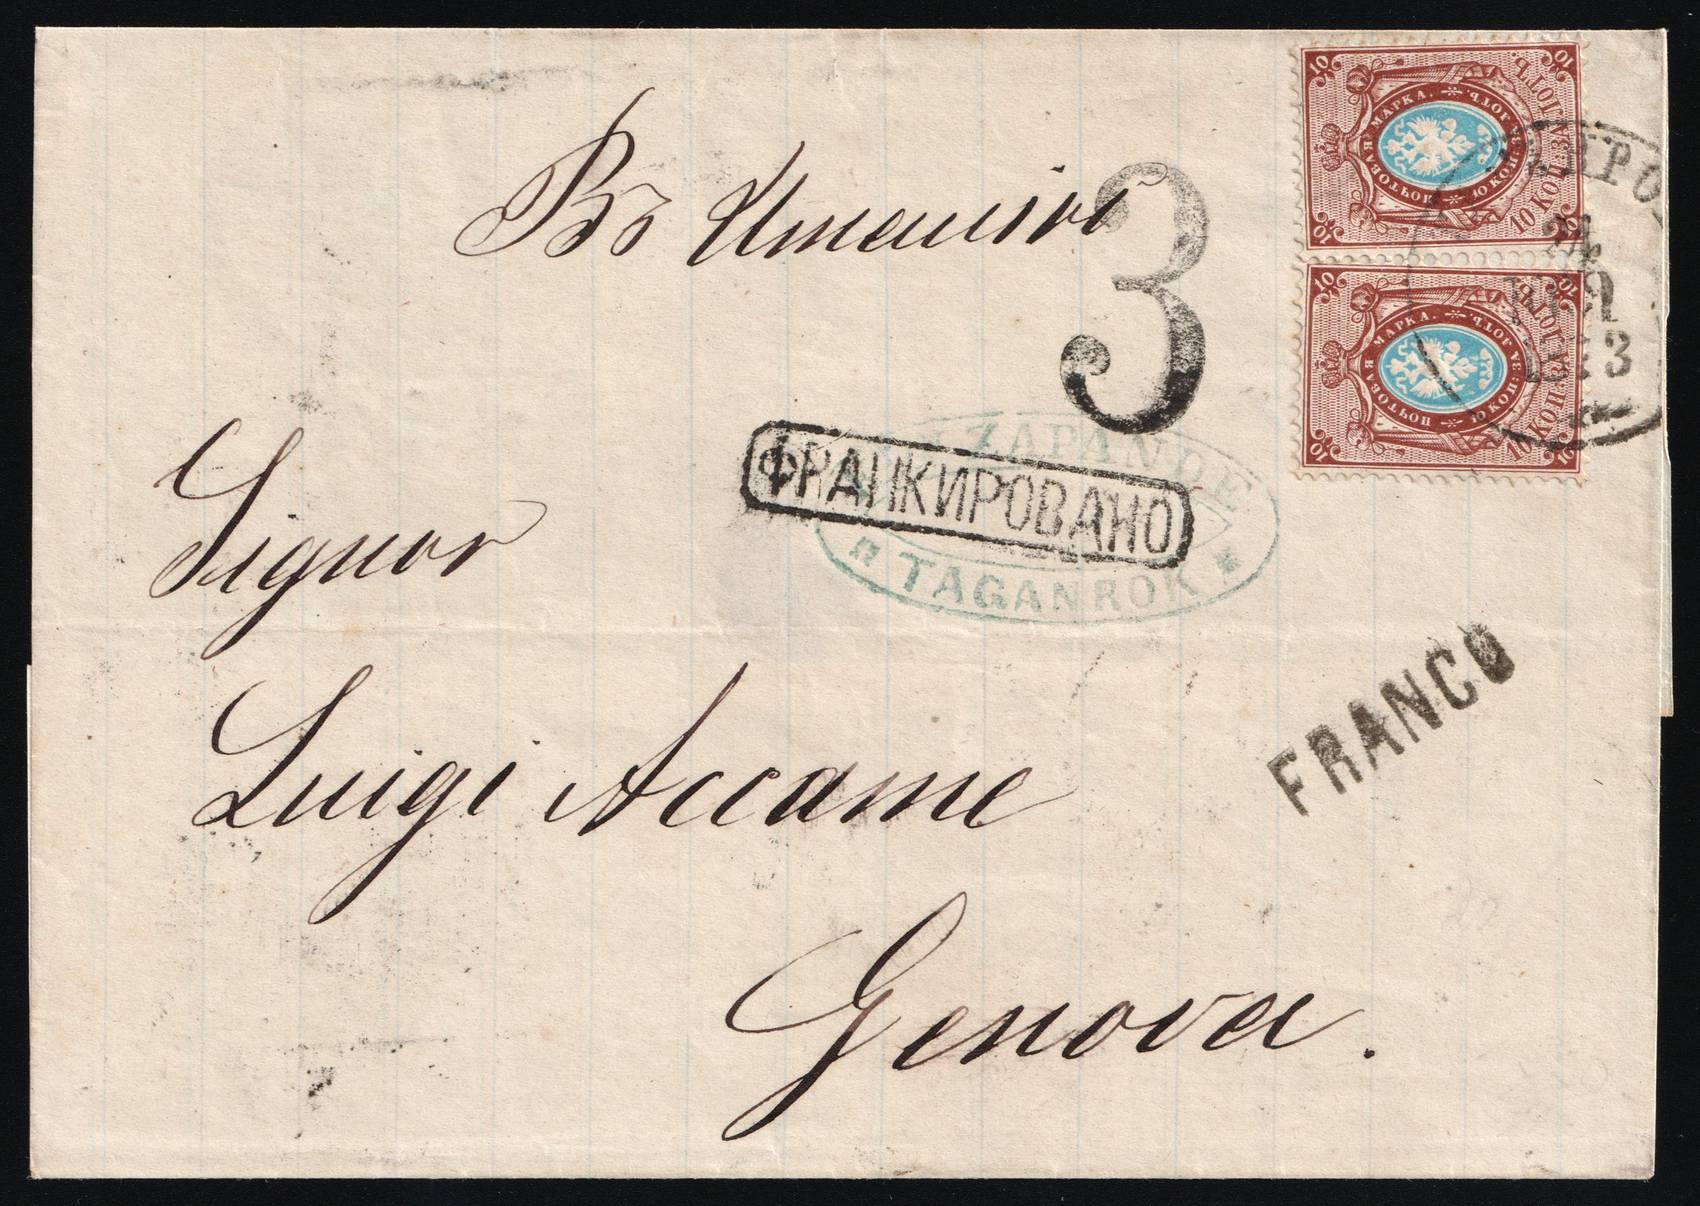 Въ Италію
3
ФРАНКИРОВАНО
TAGANROK
Signor
Luigi Accame
Genova.
FRANCO
10
ПОЧТОВАЯ МАРКА.
10 КОП. ЗА ЛОТЪ
10
ПОЧТОВАЯ МАРКА.
10 КОП. ЗА ЛОТЪ